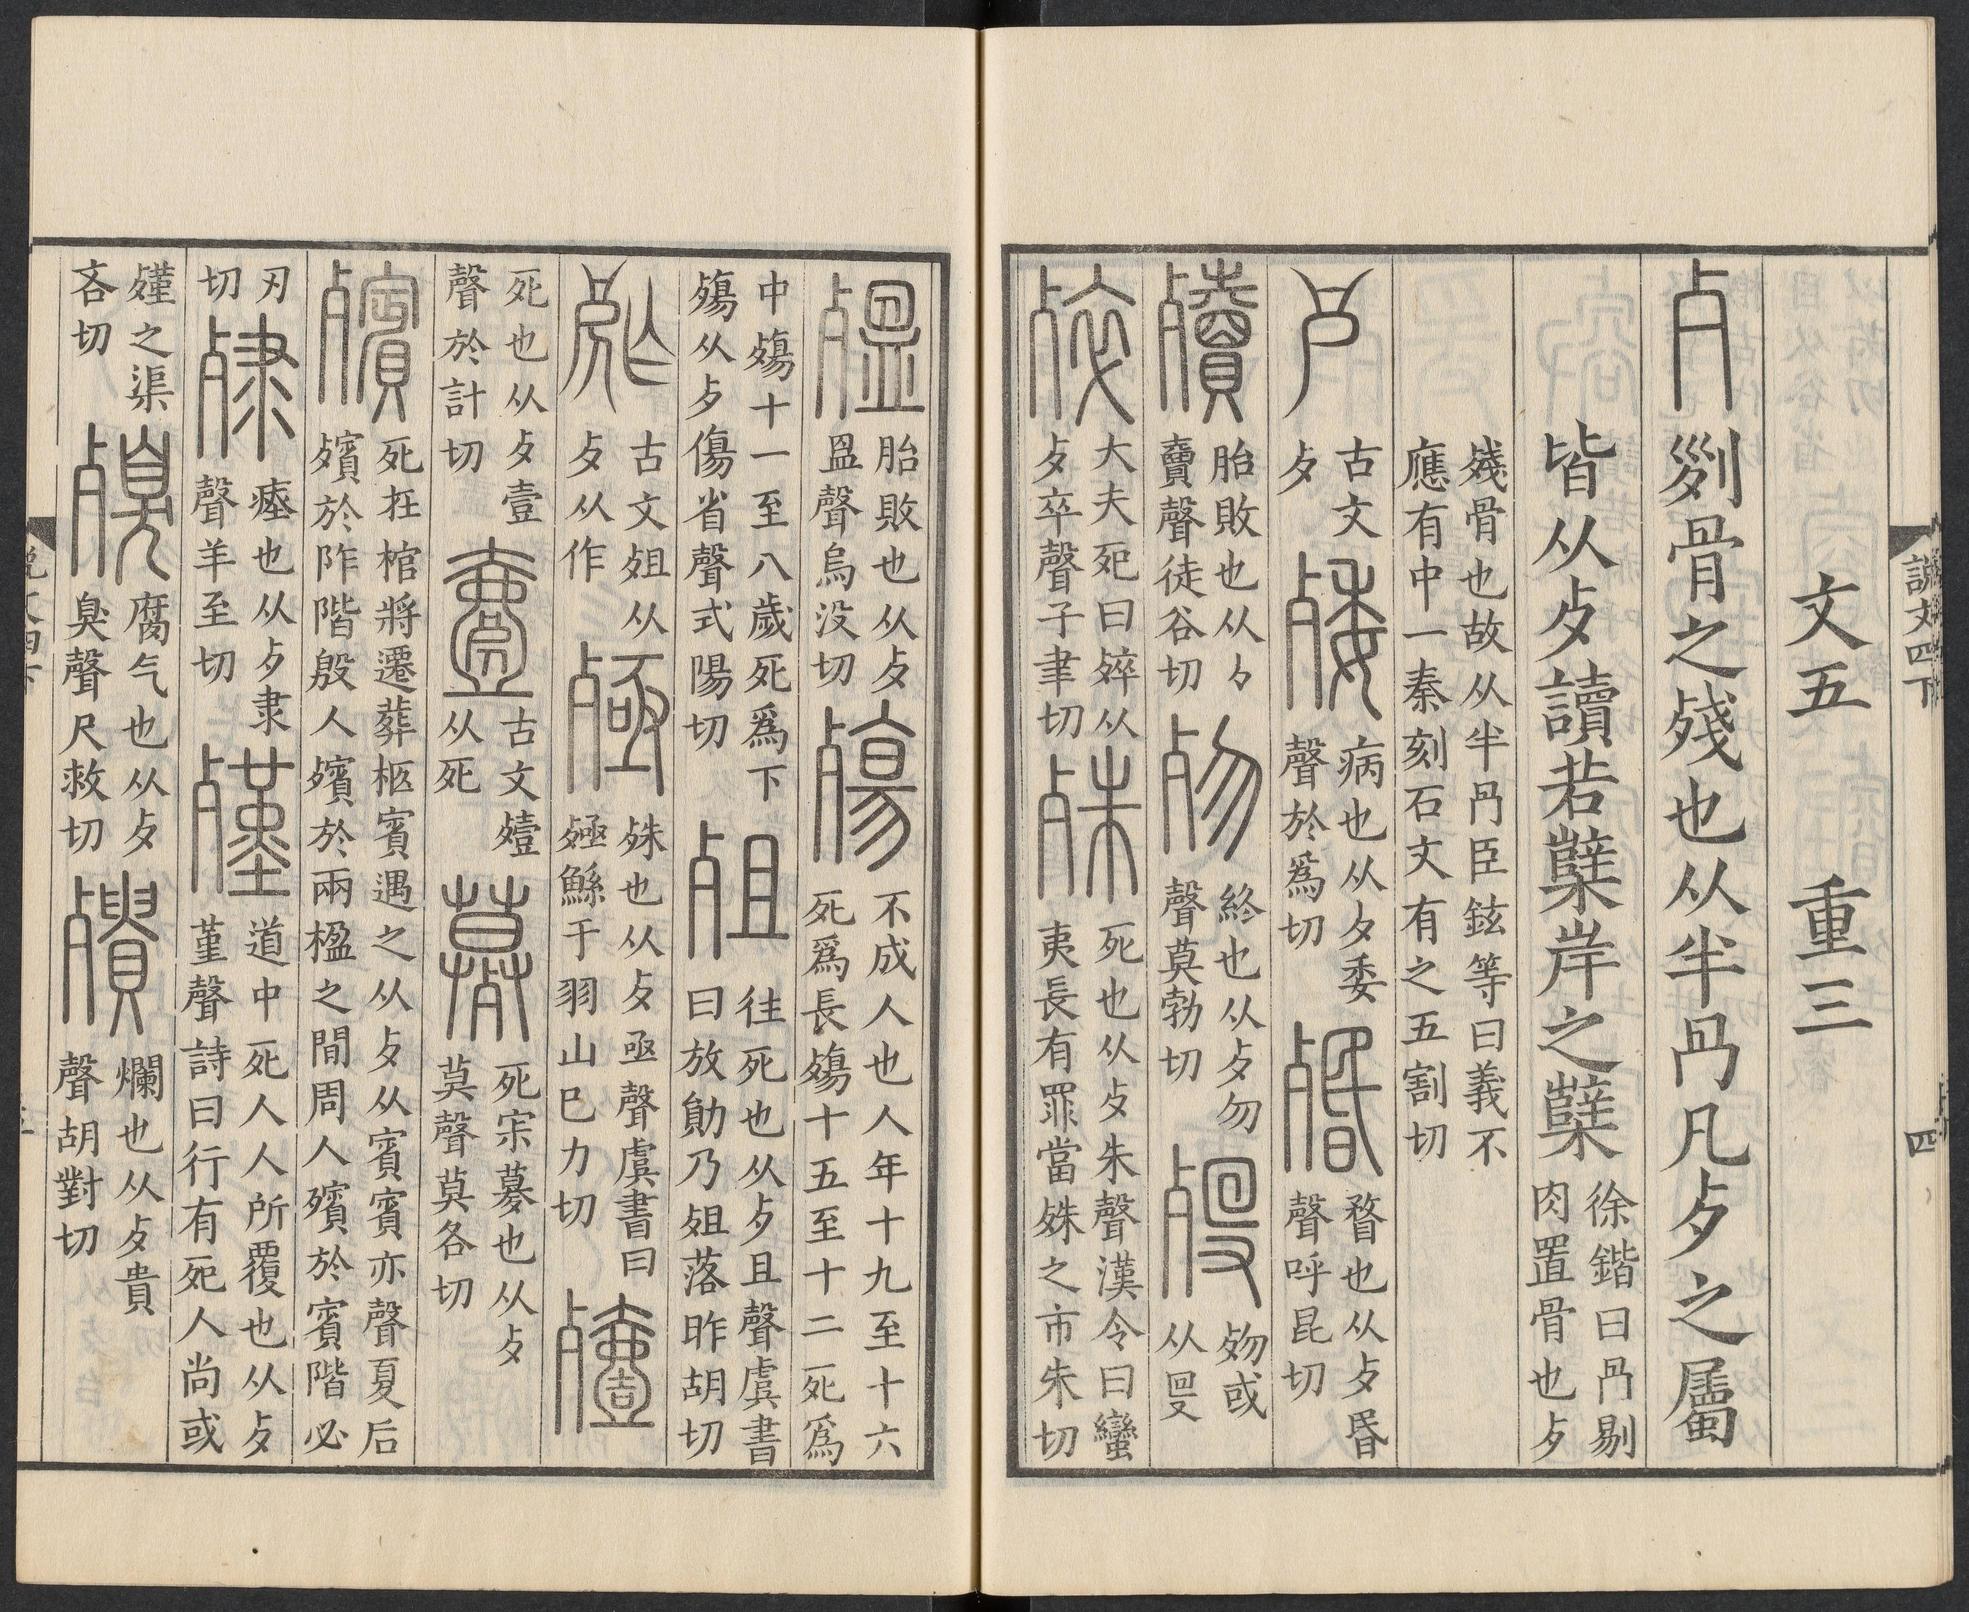 說文四下
四
文五 重三
歺 𠛱骨之殘也从半冎凡歺之屬
皆从歺讀若櫱岸之櫱 徐鍇曰冎剔
肉置骨也歺
殘骨也故从半冎臣鉉等曰義不
應有中一秦刻石文有之五割切
𣦵 古文
歺 殗 病也从歺委
聲於爲切 殙 瞀也从歺昬
聲呼昆切
殰 胎敗也从歺
𧶠聲徒谷切 歾 終也从歺勿
聲莫勃切 歿 歾或
从𠬸
殚 大夫死曰殚从
歺卒聲子聿切 殊 死也从歺朱聲漢令曰蠻
夷長有罪當殊之市朱切
殟 胎敗也从歺
𥁕聲烏没切 殤 不成人也人年十九至十六
死爲長殤十五至十二死爲
中殤十一至八歲死爲下
殤从歺傷省聲式陽切 殂 往死也从歺且聲虞書
曰放勛乃殂落昨胡切
𣨙 古文殂从
歺从作 殛 殊也从歺亟聲虞書曰
殛鯀于羽山巳力切 殪
死也从歺壹
聲於計切 𡔷 古文殪
从死 𣩎 死宗𡠜也从歺
莫聲莫各切
殯 死在棺將遷葬柩賓遇之从歺从賓賓亦聲夏后
殯於阼階殷人殯於兩楹之間周人殯於賓階必
刃
切 𣨂 瘞也从歺隶
聲羊至切 殣 道中死人人所覆也从歺
堇聲詩曰行有死人尚或
殣之渠
吝切 殠 腐气也从歺
臭聲尺救切 殨 爛也从歺貴
聲胡對切